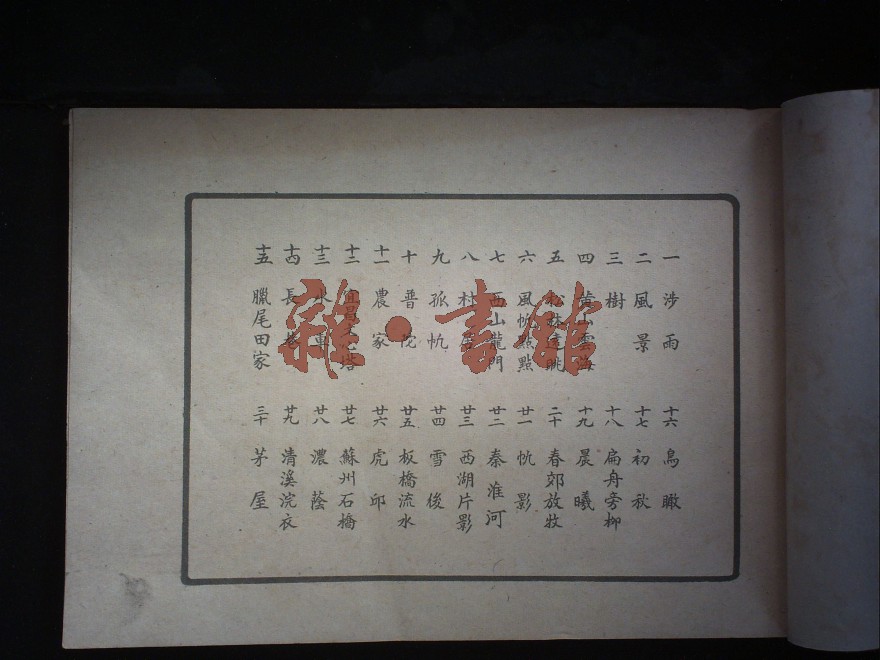 一 涉雨
二 風景
三 樹
四 黄山雲海
五 松林遠眺
六 風帆點點
七 西山龍門
八 村居
九 孤帆
十 普陀
十一 農家
十二 宜昌天然塔
十三 水車
十四 長巷
十五 臘尾田家
十六 鳥瞰
十七 初秋
十八 扁舟旁柳
十九 晨曦
二十 春郊放牧
廿一 帆影
廿二 秦淮河
廿三 西湖片影
廿四 雪後
廿五 板橋流水
廿六 虎邱
廿七 蘇州石橋
廿八 濃蔭
廿九 清溪浣衣
三十 茅屋
雜·書館